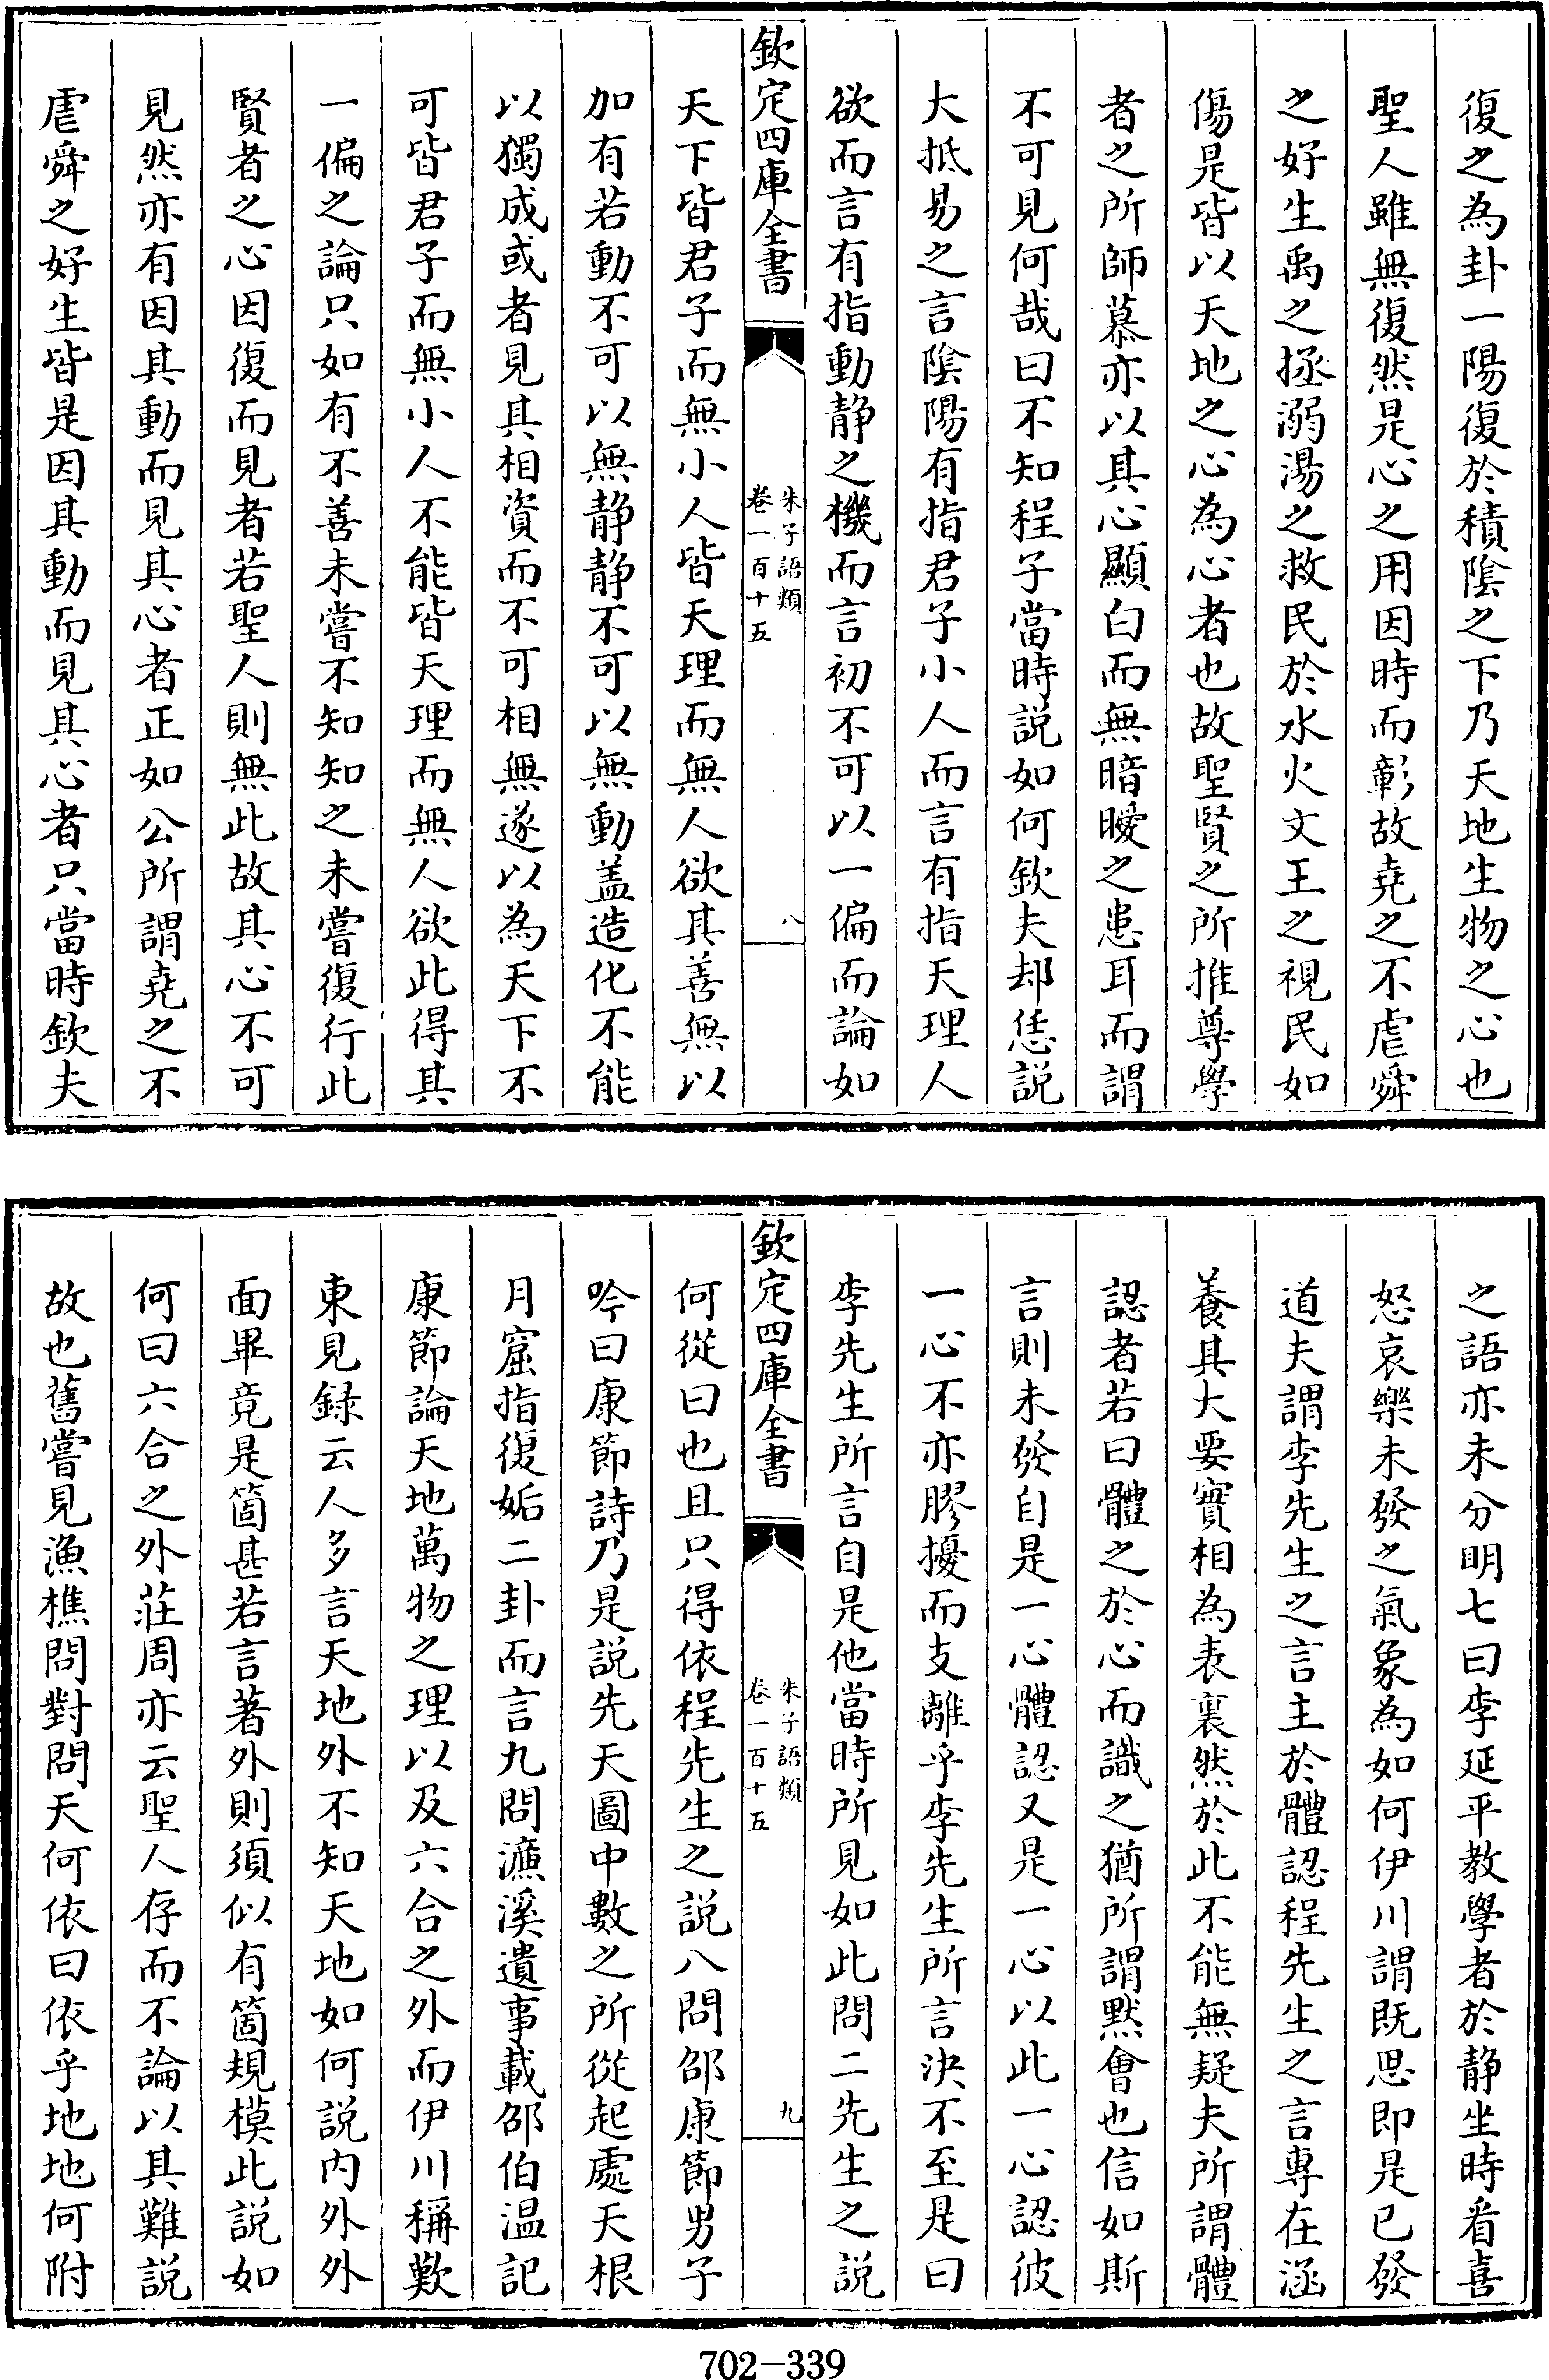 復之為卦一陽復於積陰之下乃天地生物之心也
聖人雖無復然是心之用因時而彰故堯之不虐舜
之好生禹之拯溺湯之救民於水火文王之視民如
傷是皆以天地之心為心者也故聖賢之所推尊學
者之所師慕亦以其心顯白而無暗曖之患耳而謂
不可見何哉曰不知程子當時説如何欽夫却恁説
大抵易之言陰陽有指君子小人而言有指天理人
欲而言有指動静之機而言初不可以一偏而論如
欽定四庫全書
朱子語類
卷一百十五
八
天下皆君子而無小人皆天理而無人欲其善無以
加有若動不可以無静静不可以無動盖造化不能
以獨成或者見其相資而不可相無遂以為天下不
可皆君子而無小人不能皆天理而無人欲此得其
一偏之論只如有不善未嘗不知知之未嘗復行此
賢者之心因復而見者若聖人則無此故其心不可
見然亦有因其動而見其心者正如公所謂堯之不
虐舜之好生皆是因其動而見其心者只當時欽夫
之語亦未分明七曰李延平教學者於静坐時看喜
怒哀樂未發之氣象為如何伊川謂既思即是已發
道夫謂李先生之言主於體認程先生之言專在涵
養其大要實相為表裏然於此不能無疑夫所謂體
認者若曰體之於心而識之猶所謂黙會也信如斯
言則未發自是一心體認又是一心以此一心認彼
一心不亦膠擾而支離乎李先生所言決不至是曰
李先生所言自是他當時所見如此問二先生之説
欽定四庫全書
朱子語類
卷一百十五
九
何從曰也且只得依程先生之説八問邵康節男子
吟曰康節詩乃是説先天圖中數之所從起處天根
月窟指復姤二卦而言九問濂溪遺事載邵伯溫記
康節論天地萬物之理以及六合之外而伊川稱歎
東見録云人多言天地外不知天地如何説内外外
面畢竟是箇甚若言著外則須似有箇規模此説如
何曰六合之外莊周亦云聖人存而不論以其難説
故也舊嘗見漁樵問對問天何依曰依乎地地何附
702-339